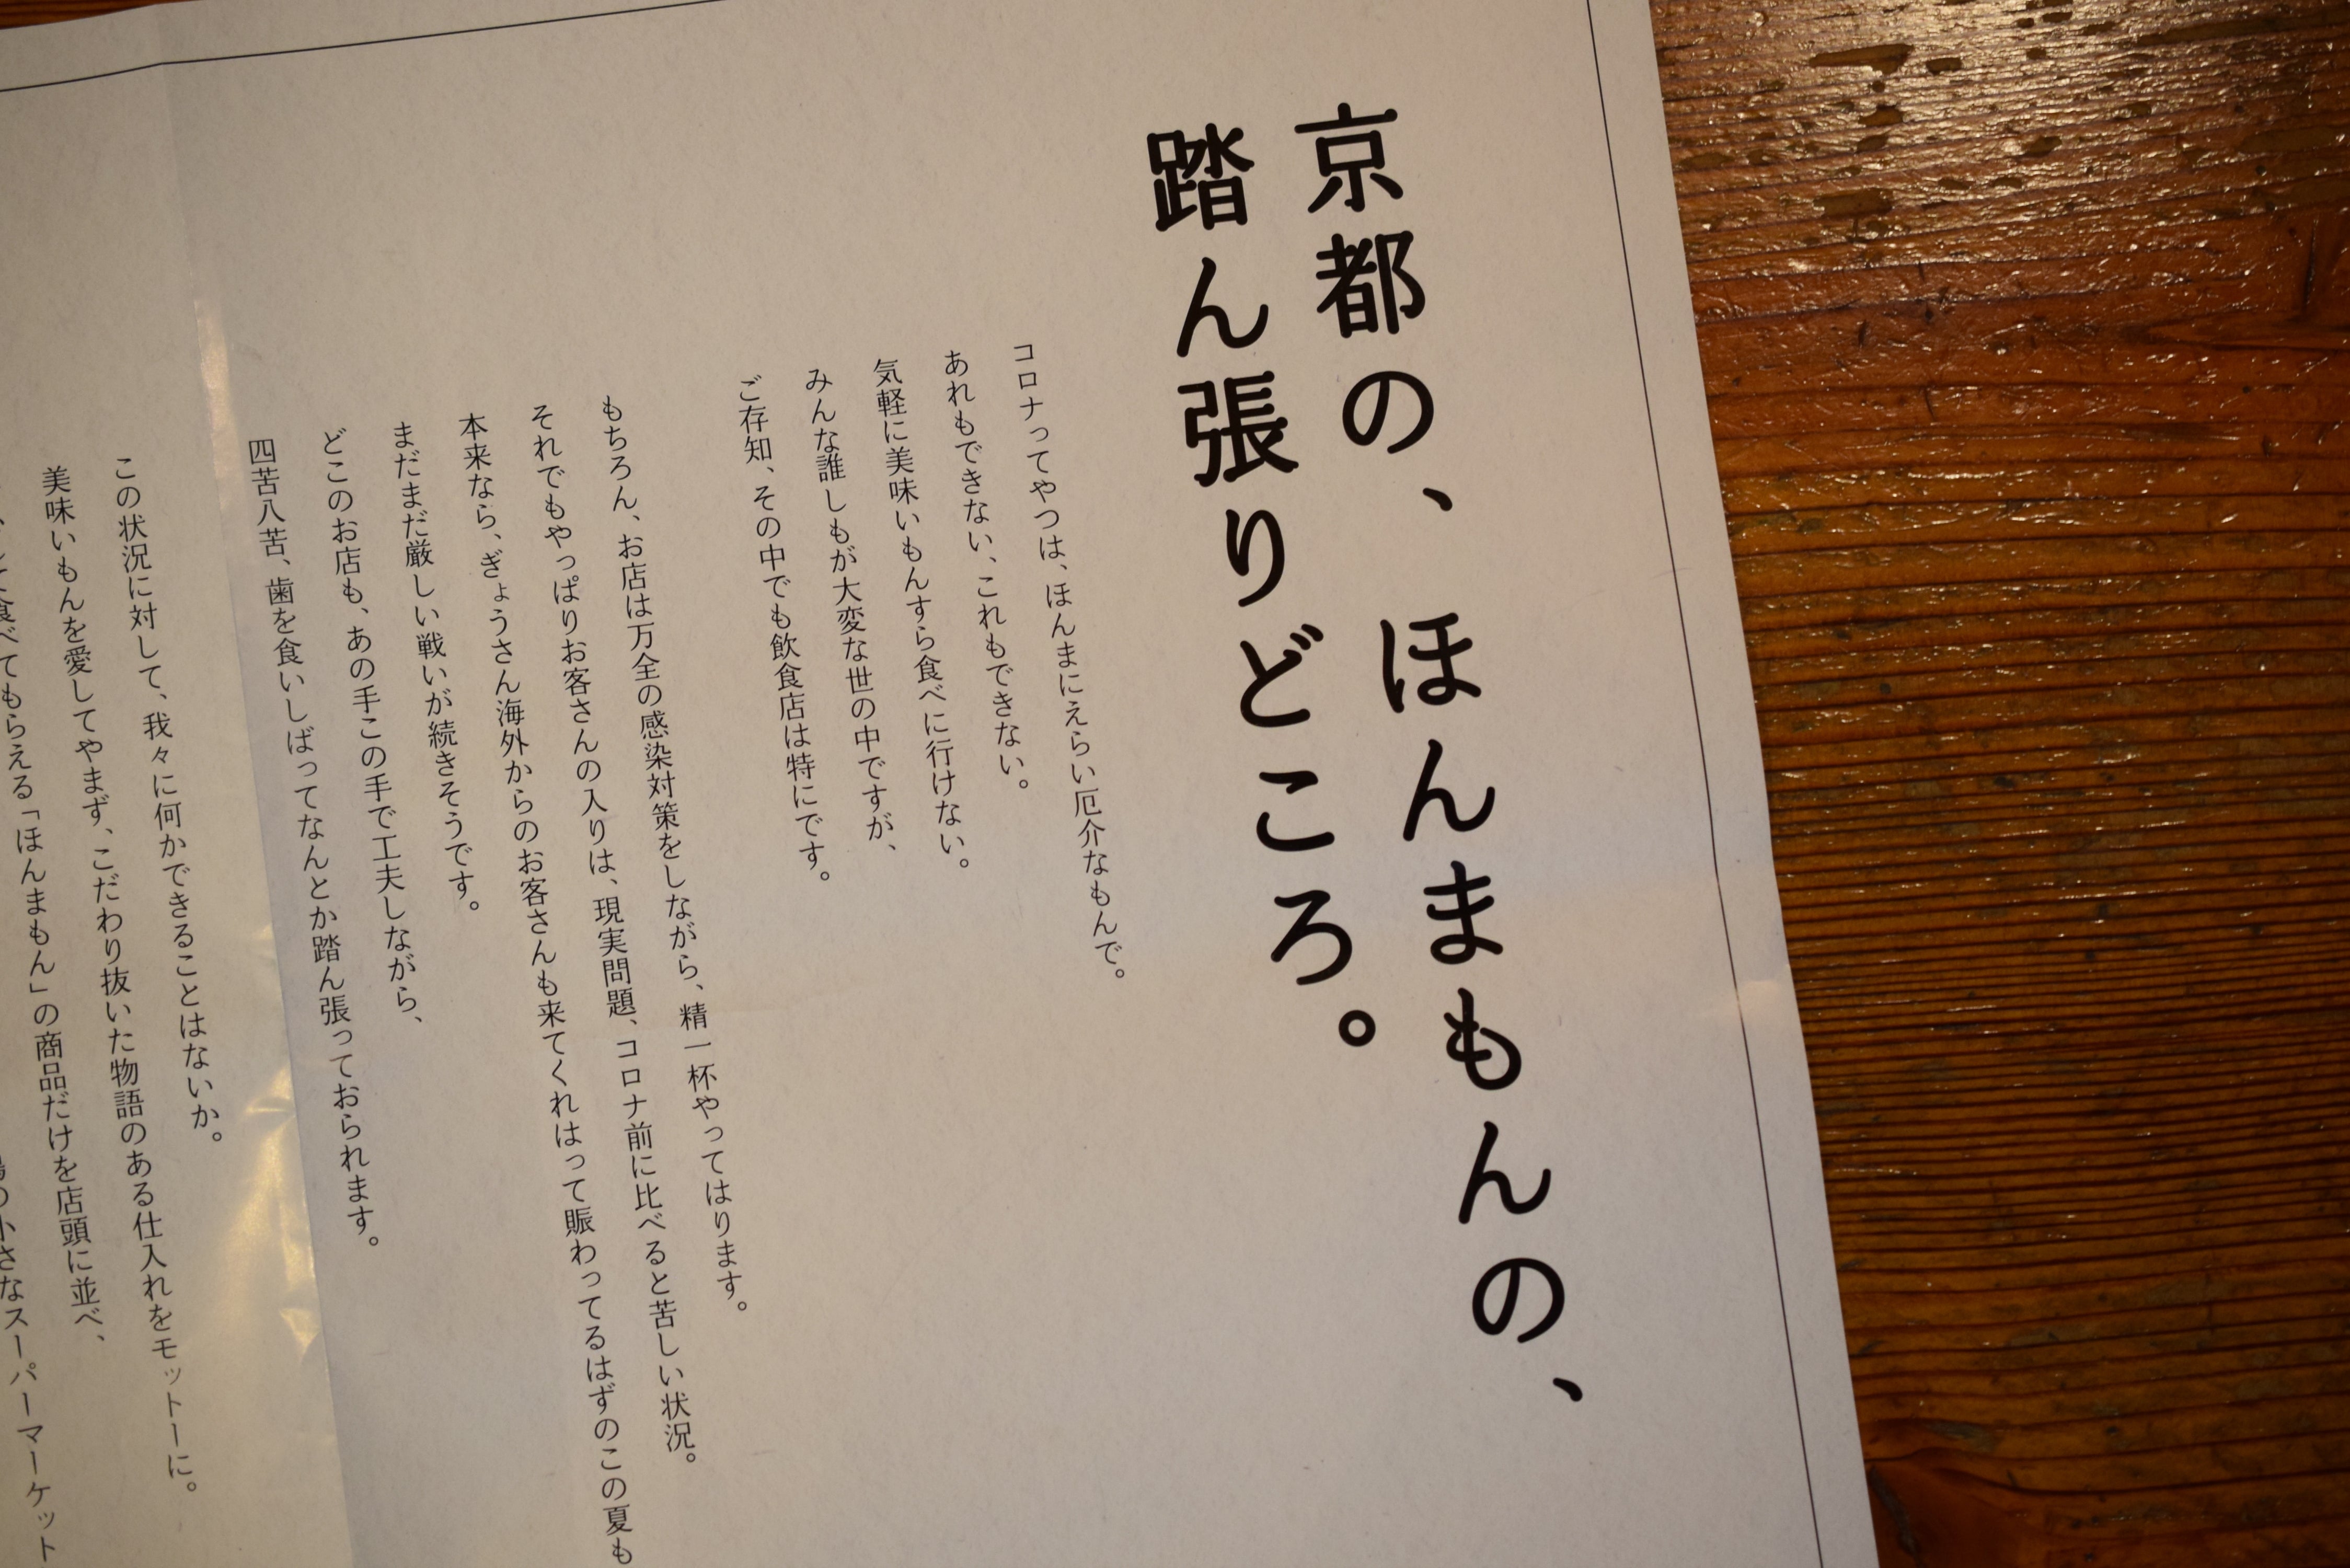 京都の、ほんまもんの、
踏ん張りどころ。
コロナってやつは、ほんまにえらい厄介なもんで。
あれもできない、これもできない。
気軽に美味いもんすら食べに行けない。
みんな誰しもが大変な世の中ですが、
ご存知、その中でも飲食店は特にです。
もちろん、お店は万全の感染対策をしながら、精一杯やってはります。
それでもやっぱりお客さんの入りは、現実問題、コロナ前に比べると苦しい状況。
本来なら、ぎょうさん海外からのお客さんも来てくれはって賑わってるはずのこの夏も
まだまだ厳しい戦いが続きそうです。
どこのお店も、あの手この手で工夫しながら、
四苦八苦、歯を食いしばってなんとか踏ん張っておられます。
この状況に対して、我々に何かできることはないか。
美味いもんを愛してやまず、こだわり抜いた物語のある仕入れをモットーに。
食べてもらえる「ほんまもん」の商品だけを店頭に並べ、
の小さなスーパーマーケット